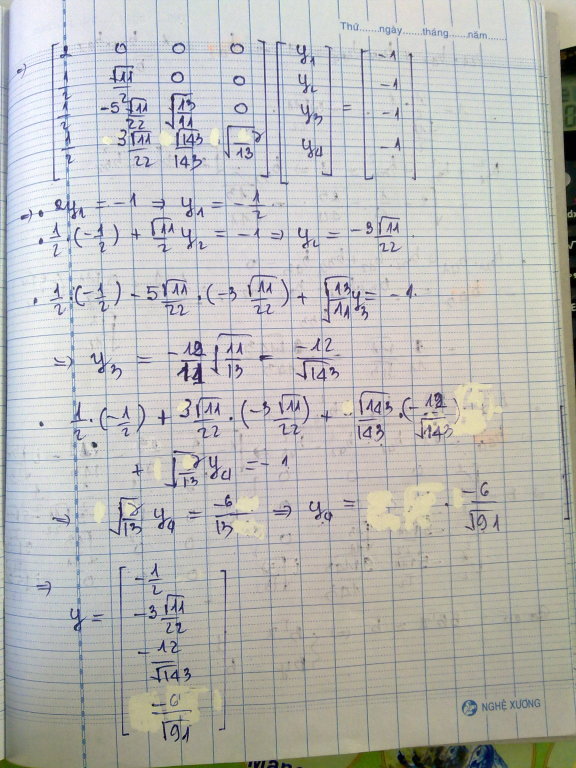 Thứ.......ngày.......tháng.......năm.......
⇒ [2 0 0 0; 1/2 √11/2 0 0; 1/2 -5√11/22 √(13/11) 0; 1/2 3√11/22 √143/143 √(7/13)] [y₁; y₂; y₃; y₄] = [-1; -1; -1; -1]
⇒ • 2y₁ = -1 ⇒ y₁ = -1/2
• 1/2 · (-1/2) + √11/2 y₂ = -1 ⇒ y₂ = -3√11/22
• 1/2 · (-1/2) - 5√11/22 · (-3√11/22) + √(13/11) y₃ = -1
⇒ y₃ = -12/11 √(11/13) = -12/√143
• 1/2 · (-1/2) + 3√11/22 · (-3√11/22) + √143/143 · (-12/√143)
+ √(7/13) y₄ = -1
⇒ √(7/13) y₄ = -6/13 ⇒ y₄ = · -6/√91
⇒
y = [-1/2; -3√11/22; -12/√143; -6/√91]
NGHỆ XƯƠNG